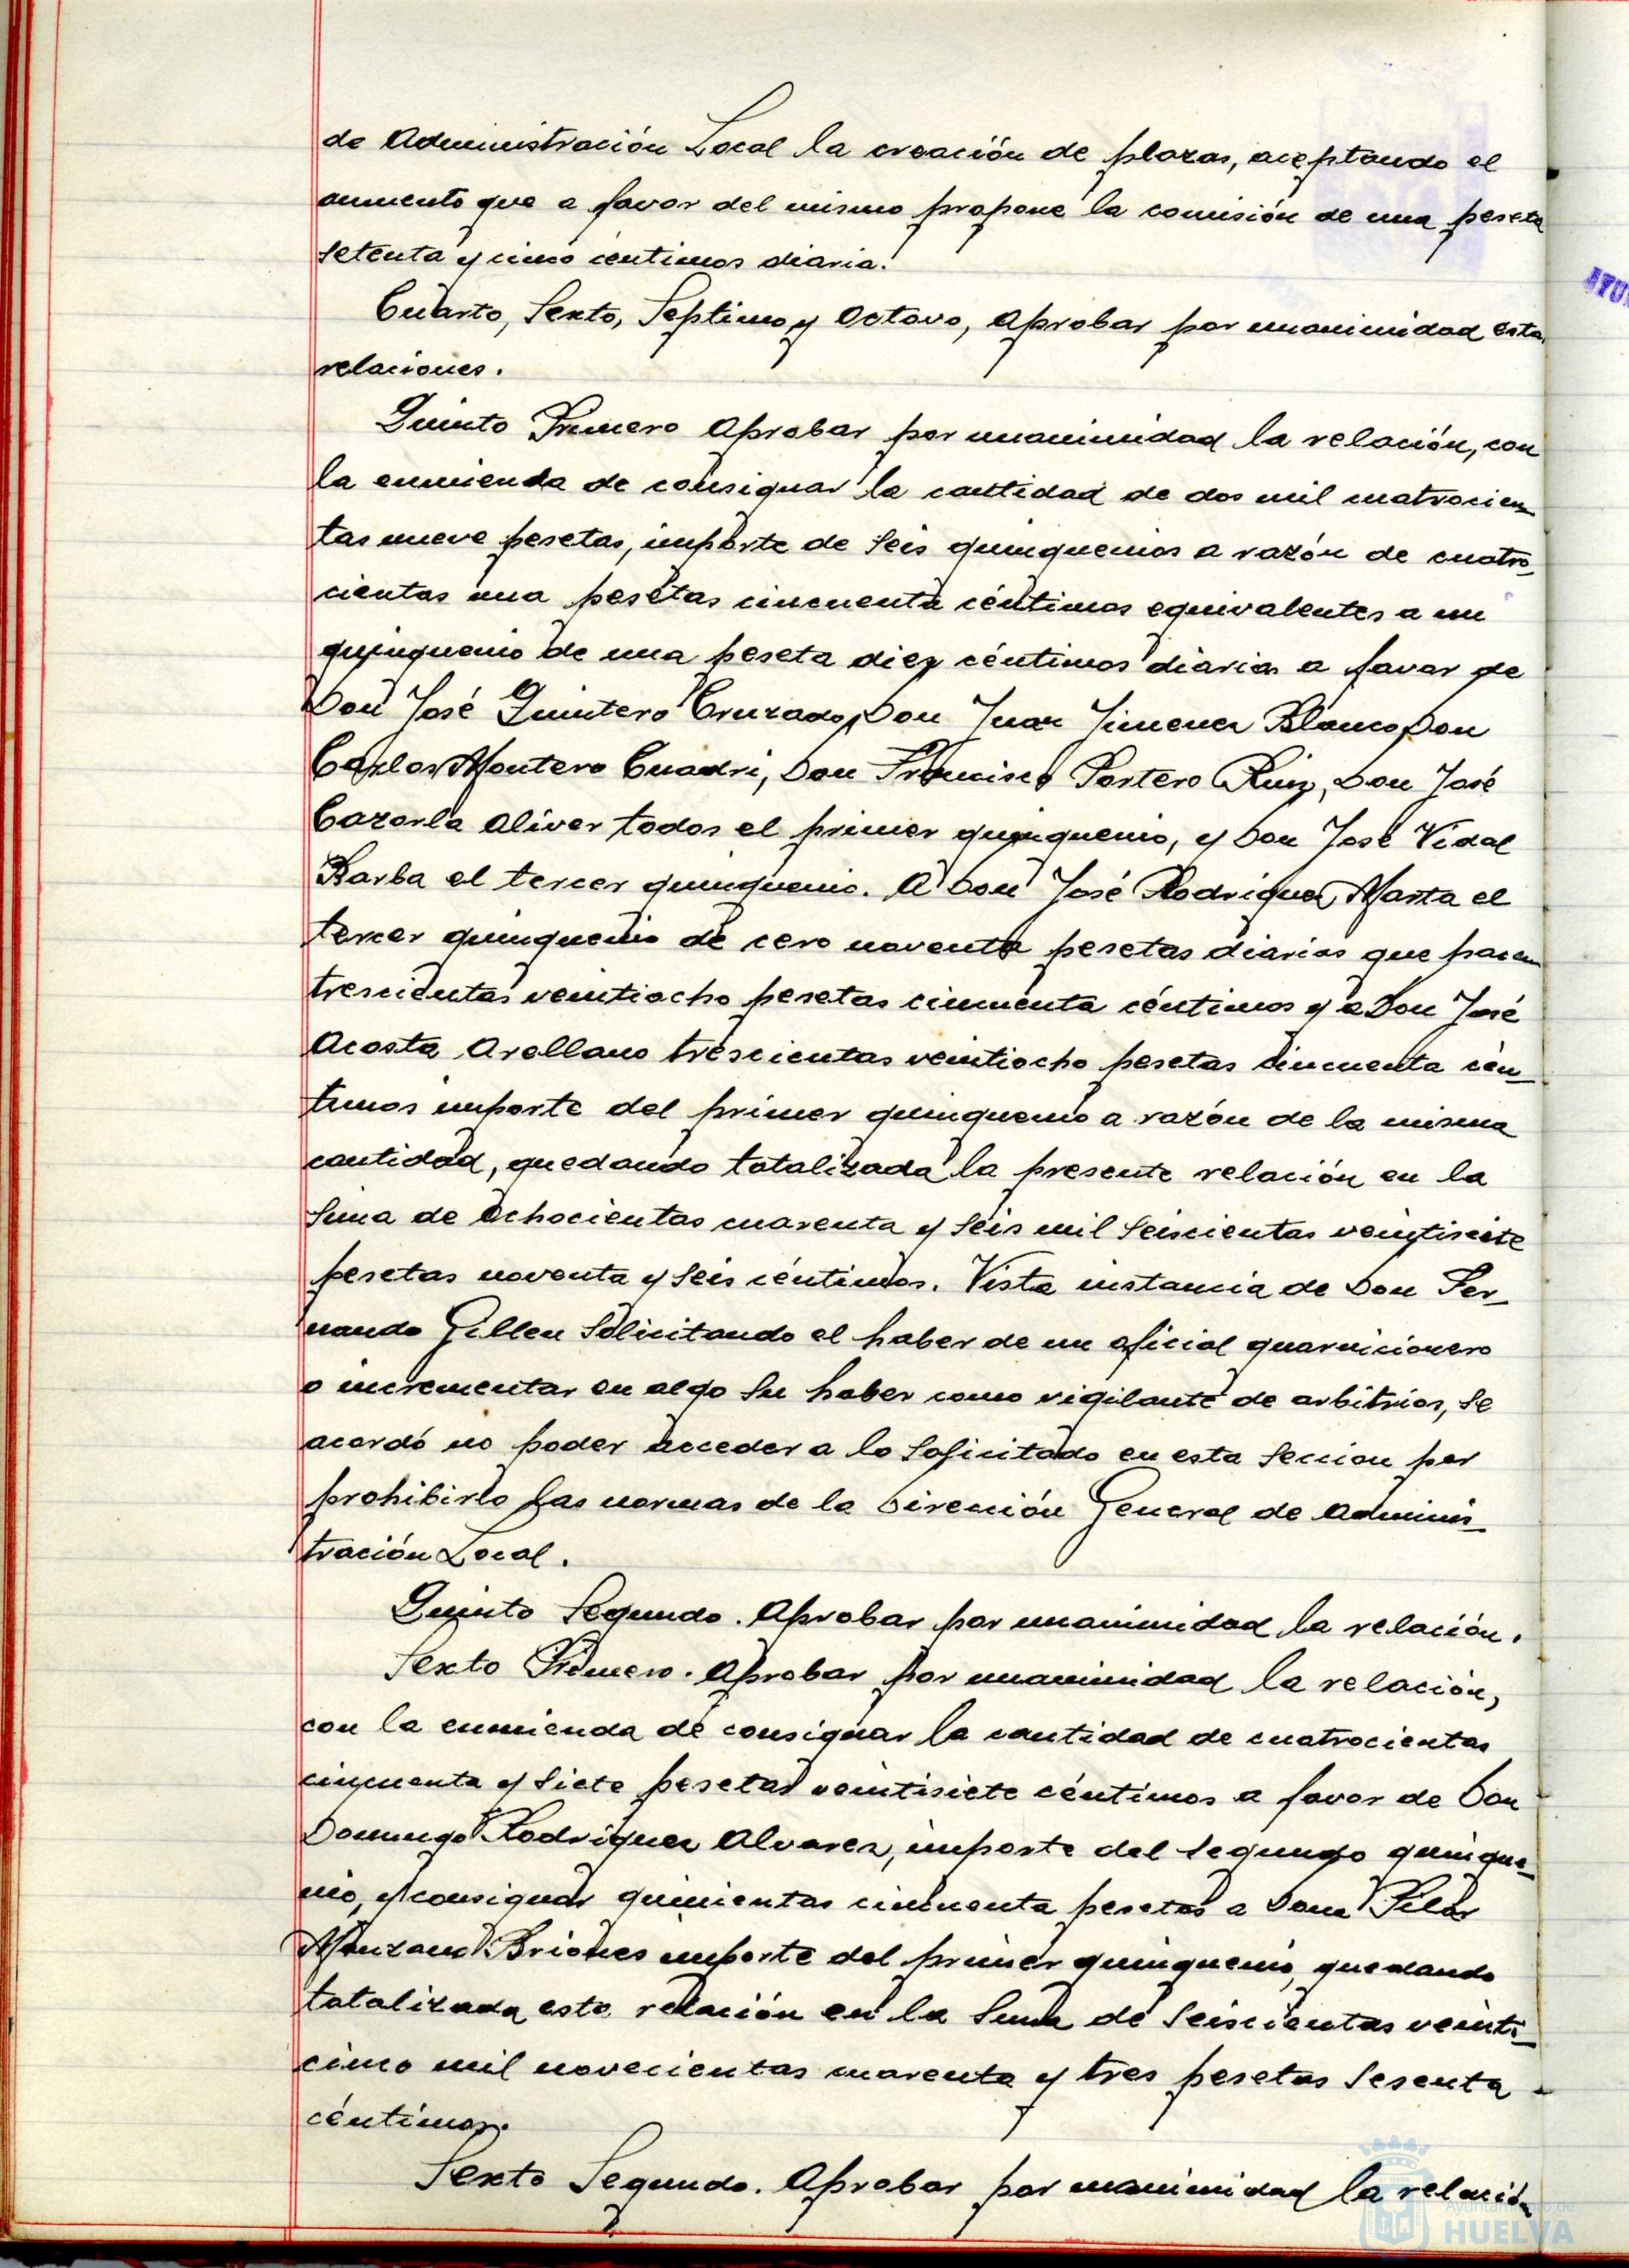 de Administración Local la creación de plazas, aceptando el
aumento que a favor del mismo propone la comisión de una peseta
setenta y cinco centimos diaria.
Cuarto, Sexto, Septimo y Octavo, Aprobar por unanimidad esta
relaciones.
Quinto Primero Aprobar por unanimidad la relación, con
la enmienda de consignar la cantidad de dos mil cuatrocien
tas nueve pesetas, importe de seis quinquenios a razón de cuatro_
cientas una pesetas cincuenta céntimos equivalentes a un
quinquenio de una peseta diez céntimos diarios a favor de
Don José Quintero Cruzado, Don Juan Jimenez Blanco, Don
Carlos Montero Cuadri, Don Francisco Portero Ruiz, Don José
Cazorla Oliver todos el primer quinquenio, y Don José Vidal
Barba el tercer quinquenio. A Don José Rodriguez Marta el
tercer quinquenio de cero noventa pesetas diarias que hacen
trescientas veintiocho pesetas cincuenta céntimos y a Don José
Acosta Arellano trescientas veintiocho pesetas cincuenta cén_
timos importe del primer quinquenio a razón de la misma
cantidad, quedando totalizada la presente relación en la
suma de ochocientas cuarenta y seis mil seiscientas veintisiete
pesetas noventa y seis céntimos. Vista instancia de Don Fer_
nando Gillen solicitando el haber de un oficial guarnicionero
o incrementar en algo su haber como vigilante de arbitrios, se
acordó no poder acceder a lo solicitado en esta seccion por
prohibirlo las normas de la Dirección General de Adminis_
tración Local.
Quinto Segundo. Aprobar por unanimidad la relación.
Sexto Primero. Aprobar por unanimidad la relación,
con la enmienda de consignar la cantidad de cuatrocientas
cincuenta y siete pesetas veintisiete céntimos a favor de Don
Domingo Rodriguez Alvarez, importe del segundo quinque_
nio, y consignar quinientas cincuenta pesetas a Dona Pilar
Manzano Briones importe del primer quinquenio, quedando
totalizada esta relación en la suma de seiscientas veinti_
cinco mil novecientas cuarenta y tres pesetas sesenta
céntimos.
Sexto Segundo. Aprobar por unanimidad la relación
Ayuntamiento de
HUELVA